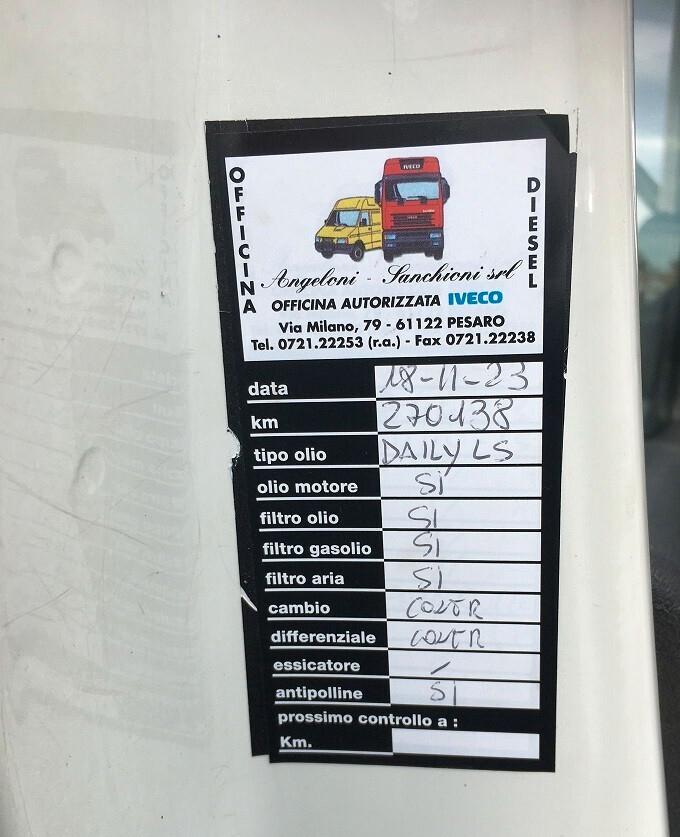 OFFICINA
DIESEL
IVECO
Angeloni - Sanchioni srl
OFFICINA AUTORIZZATA IVECO
Via Milano, 79 - 61122 PESARO
Tel. 0721.22253 (r.a.) - Fax 0721.22238
data 18-11-23
km 270138
tipo olio DAILY LS
olio motore SI
filtro olio SI
filtro gasolio SI
filtro aria SI
cambio
differenziale
essicatore /
antipolline SI
prossimo controllo a :
Km.